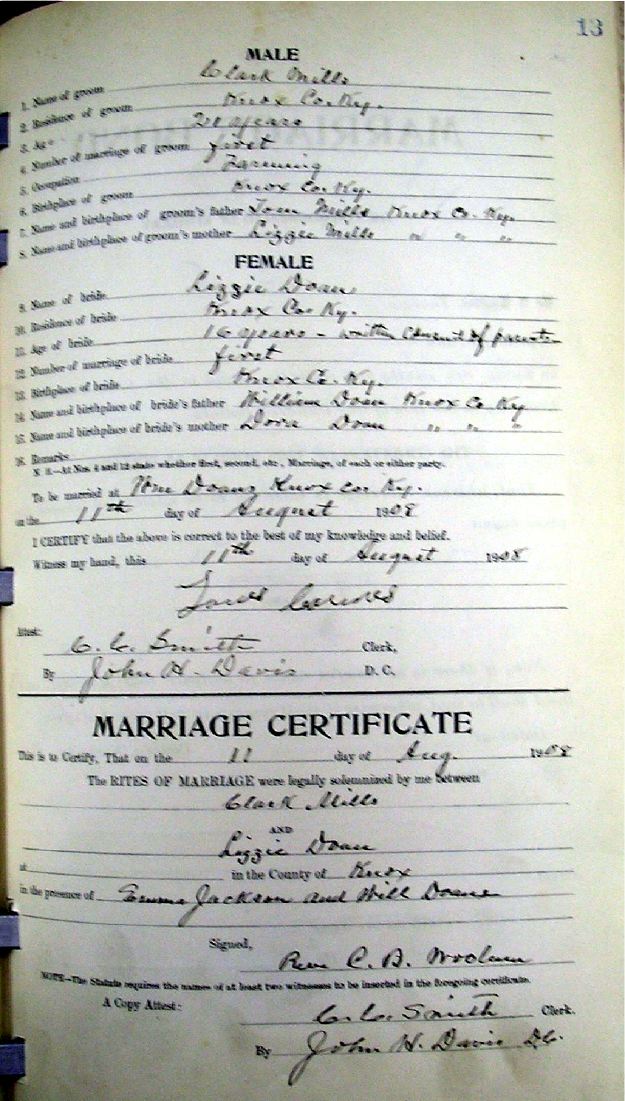 13
MALE
1. Name of groom Clark Mills
2. Residence of groom Knox Co. Ky.
3. Age 20 years
4. Number of marriage of groom first
5. Occupation Farming
6. Birthplace of groom Knox Co. Ky.
7. Name and birthplace of groom's father Tom Mills Knox Co. Ky.
8. Name and birthplace of groom's mother Lizzie Mills " " "
FEMALE
9. Name of bride Lizzie Doan
10. Residence of bride Knox Co. Ky.
11. Age of bride 16 years - written consent of parents
12. Number of marriage of bride first
13. Birthplace of bride Knox Co. Ky.
14. Name and birthplace of bride's father William Doan Knox Co Ky
15. Name and birthplace of bride's mother Dora Doan " " "
16. Remarks
N. B.—At Nos. 4 and 12 state whether first, second, etc., Marriage, of each or either party.
To be married at Wm Doans Knox Co. Ky.
on the 11th day of August 1908
I CERTIFY that the above is correct to the best of my knowledge and belief.
Witness my hand, this 11th day of August 1908
Attest:
C. C. Smith Clerk,
By John H. Davis D. C.
MARRIAGE CERTIFICATE
This is to Certify, That on the 11 day of Aug. 1908
The RITES OF MARRIAGE were legally solemnized by me between
Clark Mills
AND
Lizzie Doan
at in the County of Knox
in the presence of Emma Jackson and Will Doane
Signed,
Rev C. B. Woolum
NOTE—The Statute requires the names of at least two witnesses to be inserted in the foregoing certificate.
A Copy Attest:
C. C. Smith Clerk.
By John H. Davis D.C.